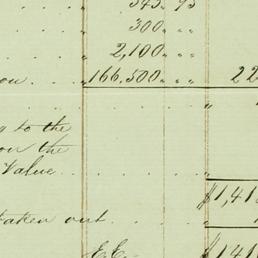 " 343. 93
" 300. " "
" 2,100. " "
" 166,500. " " 22
to the
on the
Value
" $1,41
taken out
E.E. $1,41